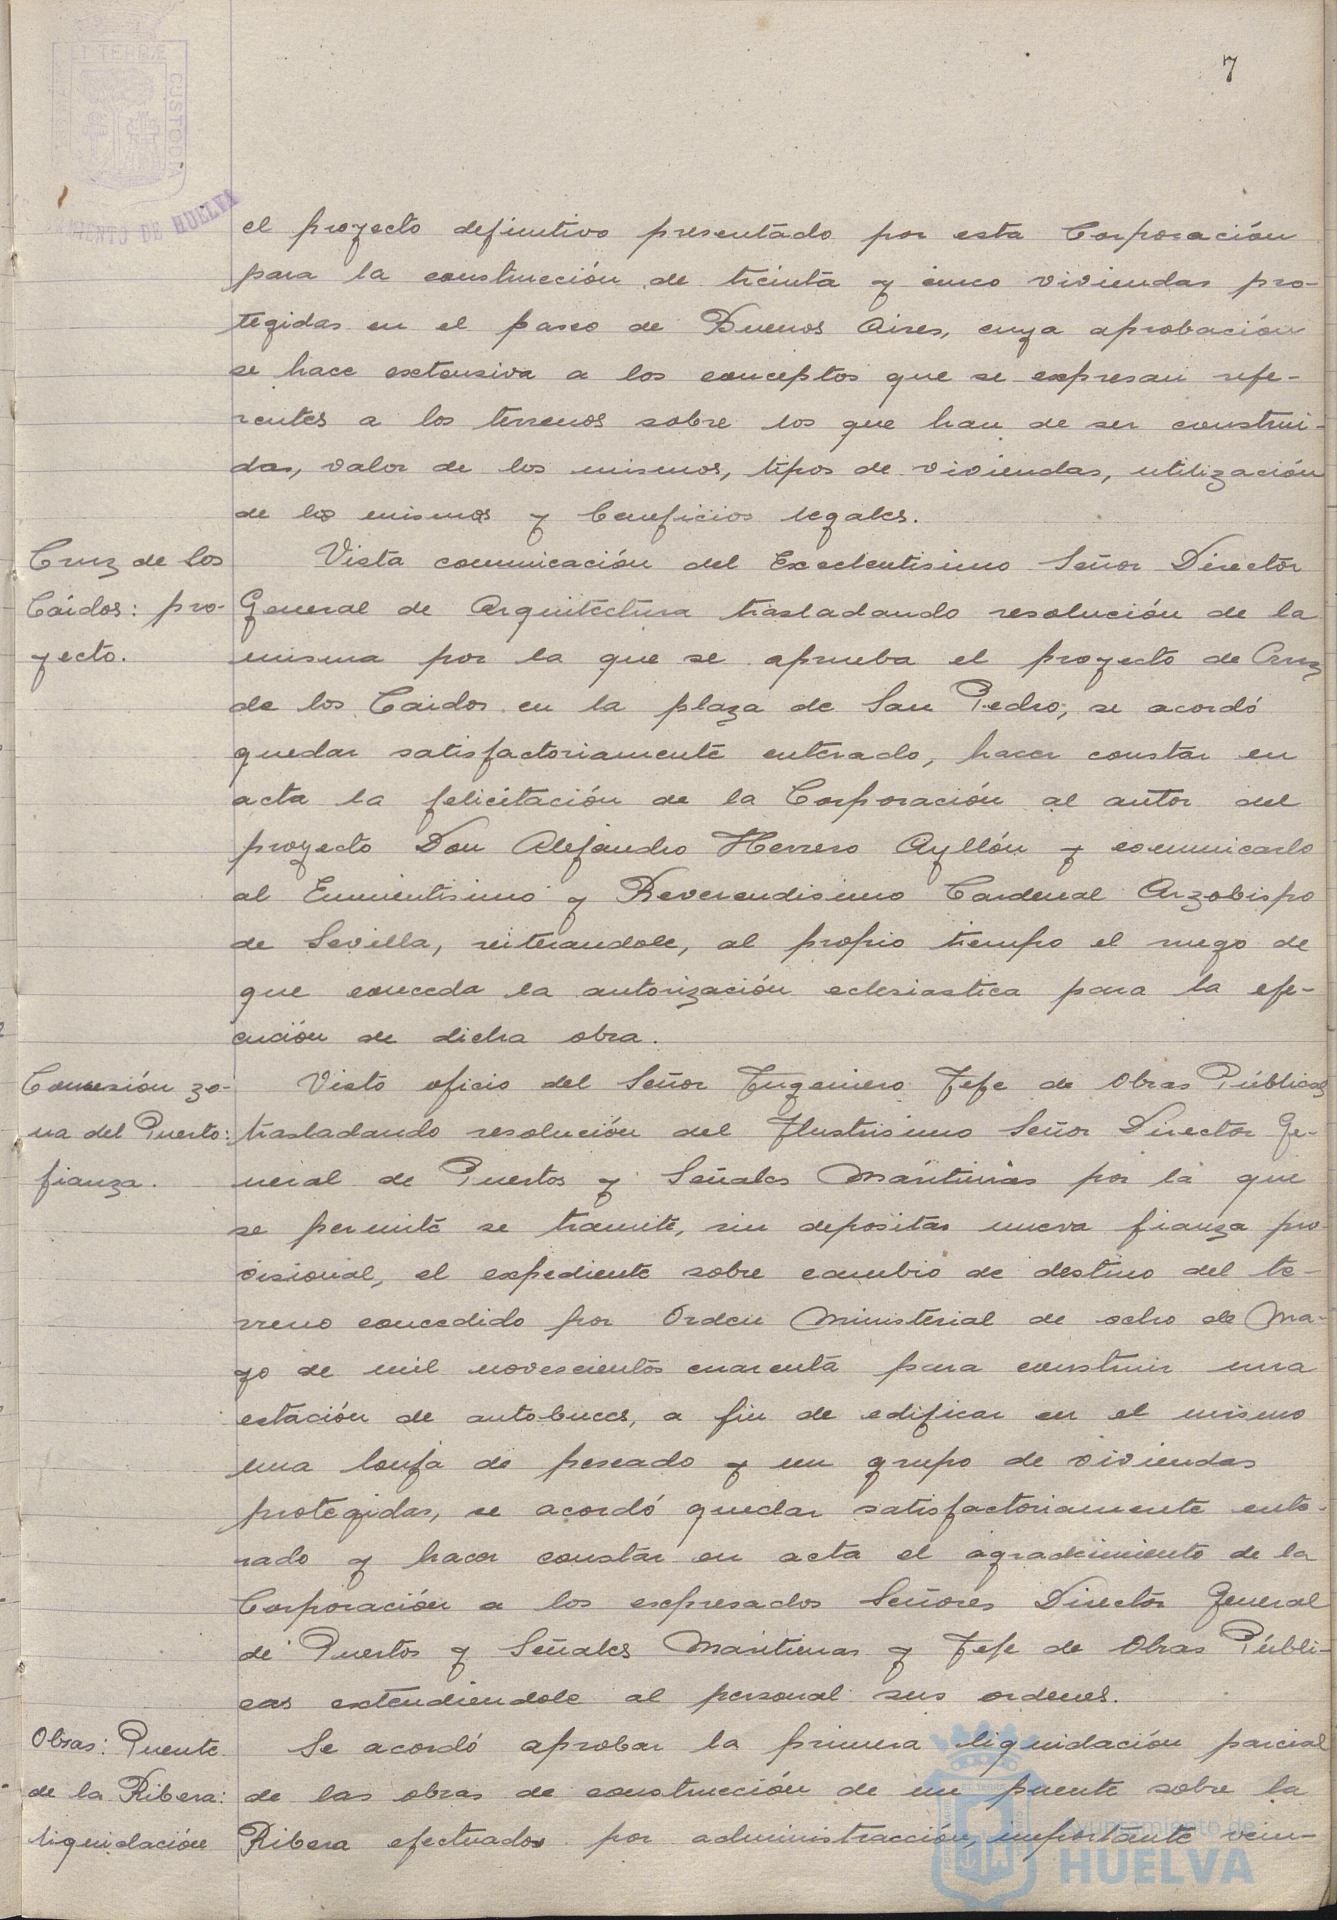 7
ET TERRÆ
CUSTODIA
MIENTO DE HUELVA
el proyecto definitivo presentado por esta Corporación
para la construcción de treinta y cinco viviendas pro-
tegidas en el paseo de Buenos Aires, cuya aprobación
se hace extensiva a los conceptos que se expresan refe-
rentes a los terrenos sobre los que han de ser construi-
das, valor de los mismos, tipos de viviendas, utilización
de los mismos y beneficios legales.
Cruz de los
Caidos: pro-
yecto.
Vista comunicación del Excelentisimo Señor Director
General de Arquitectura trasladando resolución de la
misma por la que se aprueba el proyecto de Cruz
de los Caidos en la plaza de San Pedro, se acordó
quedar satisfactoriamente enterado, hacer constar en
acta la felicitación de la Corporación al autor del
proyecto Don Alejandro Herrero Ayllón y comunicarlo
al Eminentisimo y Reverendisimo Cardenal Arzobispo
de Sevilla, reiterandole, al propio tiempo el ruego de
que conceda la autorización eclesiastica para la eje-
cución de dicha obra.
Concesión zo-
na del Puerto:
fianza.
Visto oficio del Señor Ingeniero Jefe de Obras Públicas
trasladando resolución del Ilustrisimo Señor Director Ge-
neral de Puertos y Señales Maritimas por la que
se permite se tramite, sin depositar nueva fianza pro-
visional, el expediente sobre cambio de destino del te-
rreno concedido por Orden Ministerial de ocho de Ma-
yo de mil novescientos cuarenta para construir una
estación de autobuses, a fin de edificar en el mismo
una lonja de pescado y un grupo de viviendas
protegidas, se acordó quedar satisfactoriamente ente-
rado y hacer constar en acta el agradecimiento de la
Corporación a los expresados Señores Director General
de Puertos y Señales Maritimas y Jefe de Obras Públi-
cas extendiendole al personal sus ordenes.
Obras: Puente
de la Ribera:
liquidación
Se acordó aprobar la primera liquidación parcial
de las obras de construcción de un puente sobre la
Ribera efectuados por administracción, importante vein-
Ayuntamiento de
HUELVA